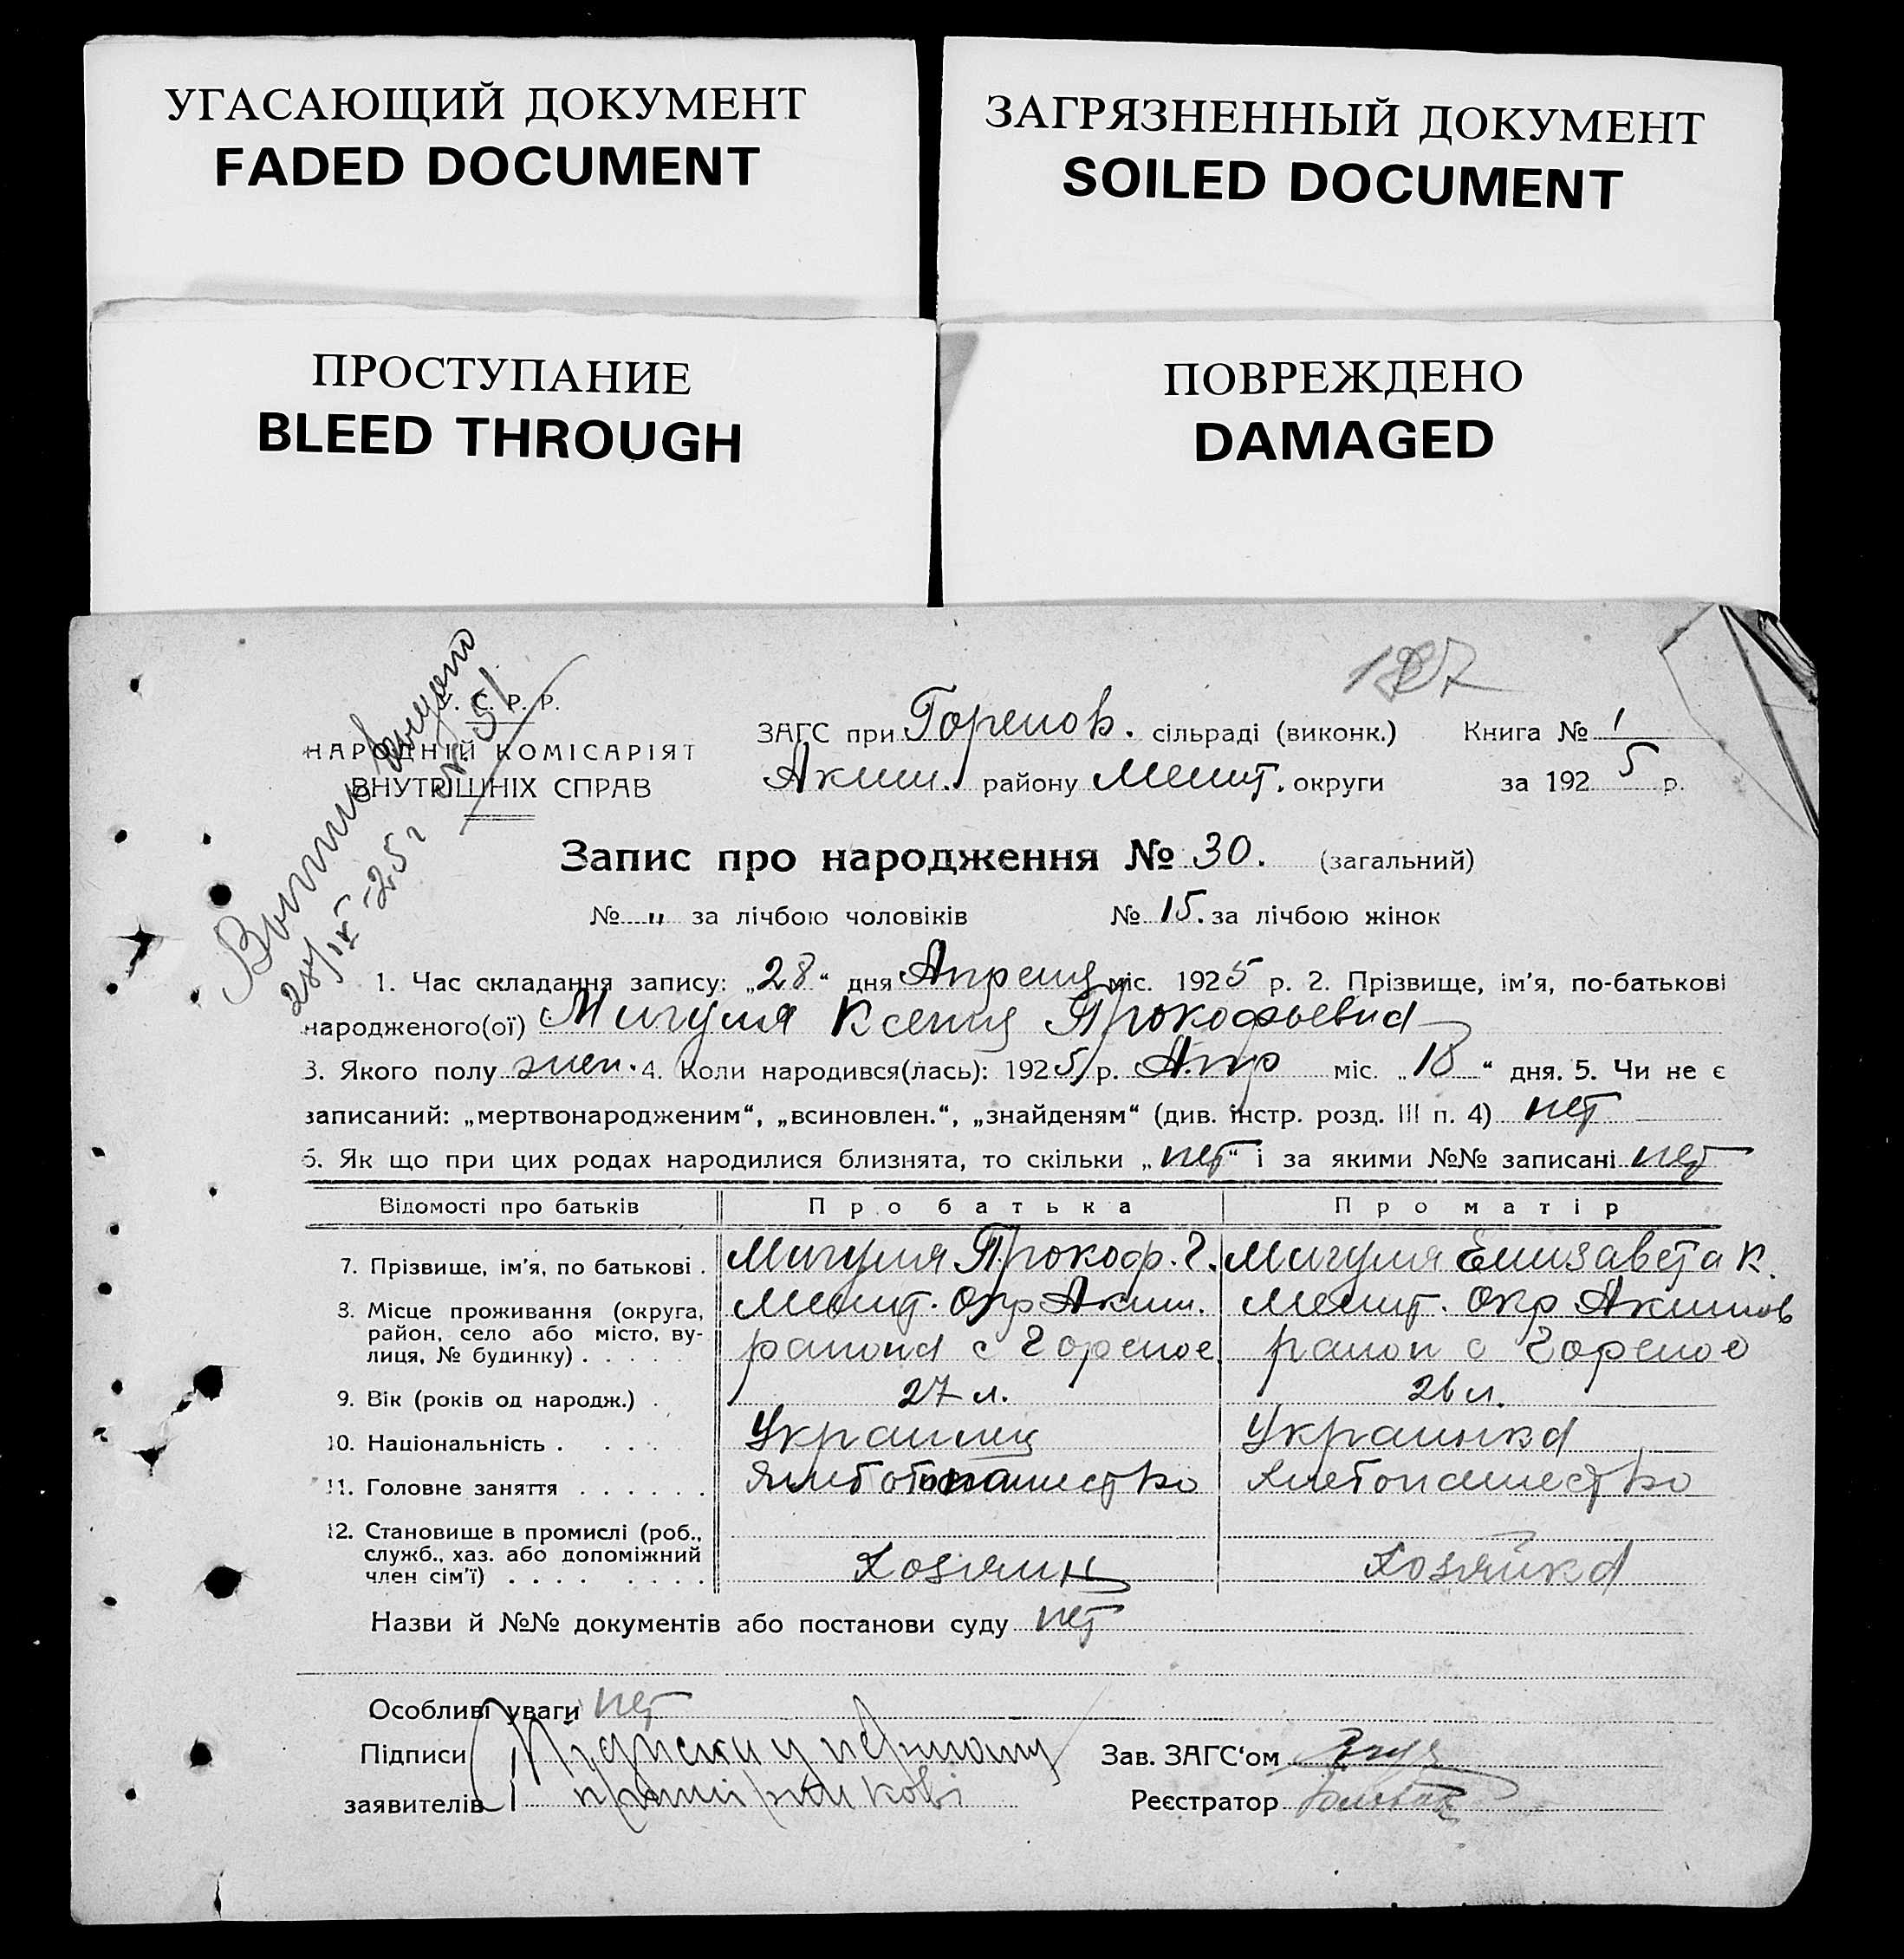 УГАСАЮЩИЙ ДОКУМЕНТ
FADED DOCUMENT
ЗАГРЯЗНЕННЫЙ ДОКУМЕНТ
SOILED DOCUMENT
ПРОСТУПАНИЕ
BLEED THROUGH
ПОВРЕЖДЕНО
DAMAGED
127
Выпись выдано
28/IV-25 г № 51
С. Р. Р.
НАРОДНІЙ КОМІСАРІЯТ
ВНУТРІШНІХ СПРАВ
ЗАГС при Горелов. сільраді (виконк.) Книга № 1
Аким. району Мелит. округи за 1925 р.
Запис про народження № 30. (загальний)
№ " за лічбою чоловіків № 15. за лічбою жінок
1. Час складання запису: „28“ дня Апреля міс. 1925 р. 2. Прізвище, ім'я, по-батькові
народженого(ої) Мигуля Ксения Прокофьевна
3. Якого полу жен. 4. Коли народився(лась): 1925 р. Апр міс. „18“ дня. 5. Чи не є
записаний: „мертвонародженим“, „всиновлен.“, „знайденям“ (див. інстр. розд. III п. 4) нет
6. Як що при цих родах народилися близнята, то скільки „нет“ і за якими №№ записані нет
Відомості про батьків Про батька Про матір
7. Прізвище, ім'я, по батькові . Мигуля Прокоф. Г. Мигуля Елизавета К.
8. Місце проживання (округа, Мелит. Окр Аким. Мелит. Окр Акимов
район, село або місто, ву-
лиця, № будинку) . . . . . района с Горелое район с Горелое
9. Вік (років од народж.) . 27 л. 26 л.
10. Національність . . . . Украинец Украинка
11. Головне заняття . . . . . . Хлебопашество Хлебопашество
12. Становище в промислі (роб.,
служб., хаз. або допоміжний
член сім'ї) . . . . . . . . Хозяин Хозяйка
Назви й №№ документів або постанови суду нет
Особливі уваги нет
Підписи Підписи у першому Зав. ЗАГС'ом
заявителів примірникові Реєстратор